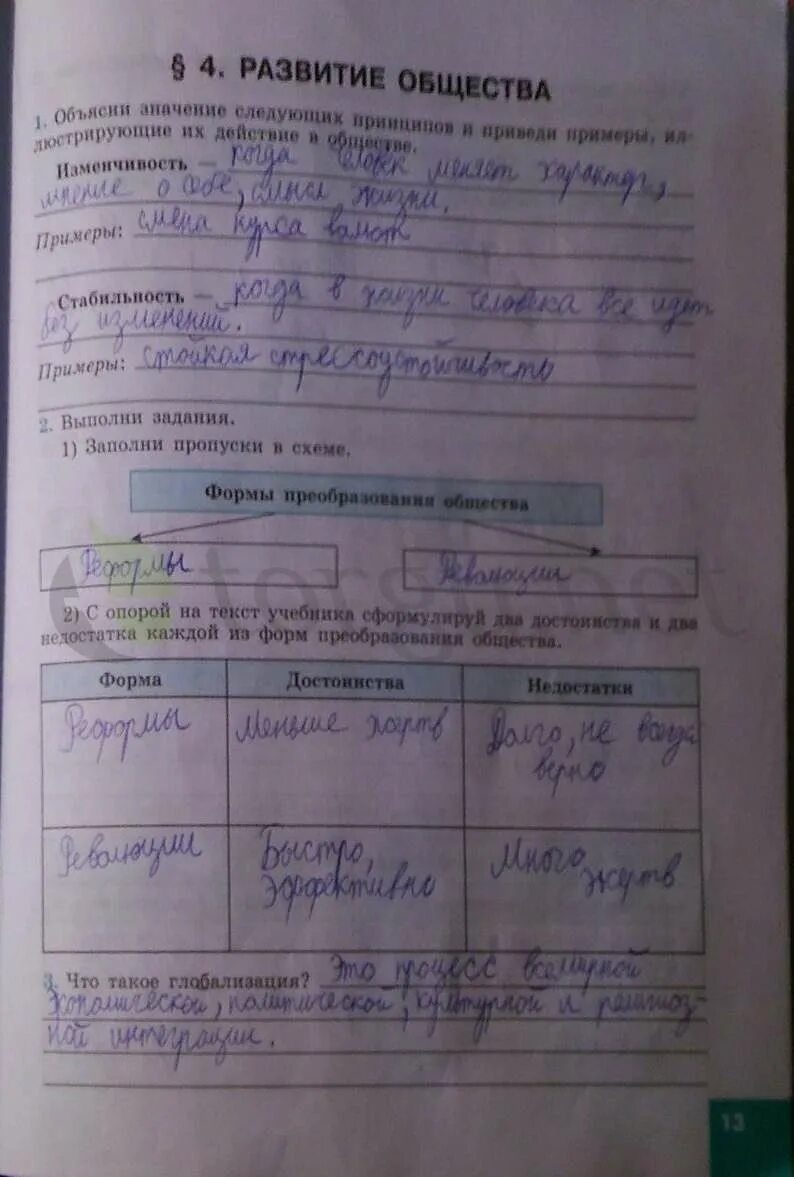 § 4. РАЗВИТИЕ ОБЩЕСТВА
1. Объясни значение следующих принципов и приведи примеры, ил-
люстрирующие их действие в обществе.
Изменчивость – когда человек меняет характер,
мнение о себе, смысл жизни.
Примеры: смена курса валют
Стабильность – когда в жизни человека все идет
без изменений.
Примеры: стойкая стрессоустойчивость
2. Выполни задания.
1) Заполни пропуски в схеме.
Формы преобразования общества
Реформы
Революции
2) С опорой на текст учебника сформулируй два достоинства и два
недостатка каждой из форм преобразования общества.
Форма Достоинства Недостатки
Реформы Меньше жертв Долго, не всегда
верно
Революции Быстро, Много
эффективно жертв
3. Что такое глобализация? Это процесс всемирной
экономической, политической, культурной и религиоз-
ной интеграции.
13